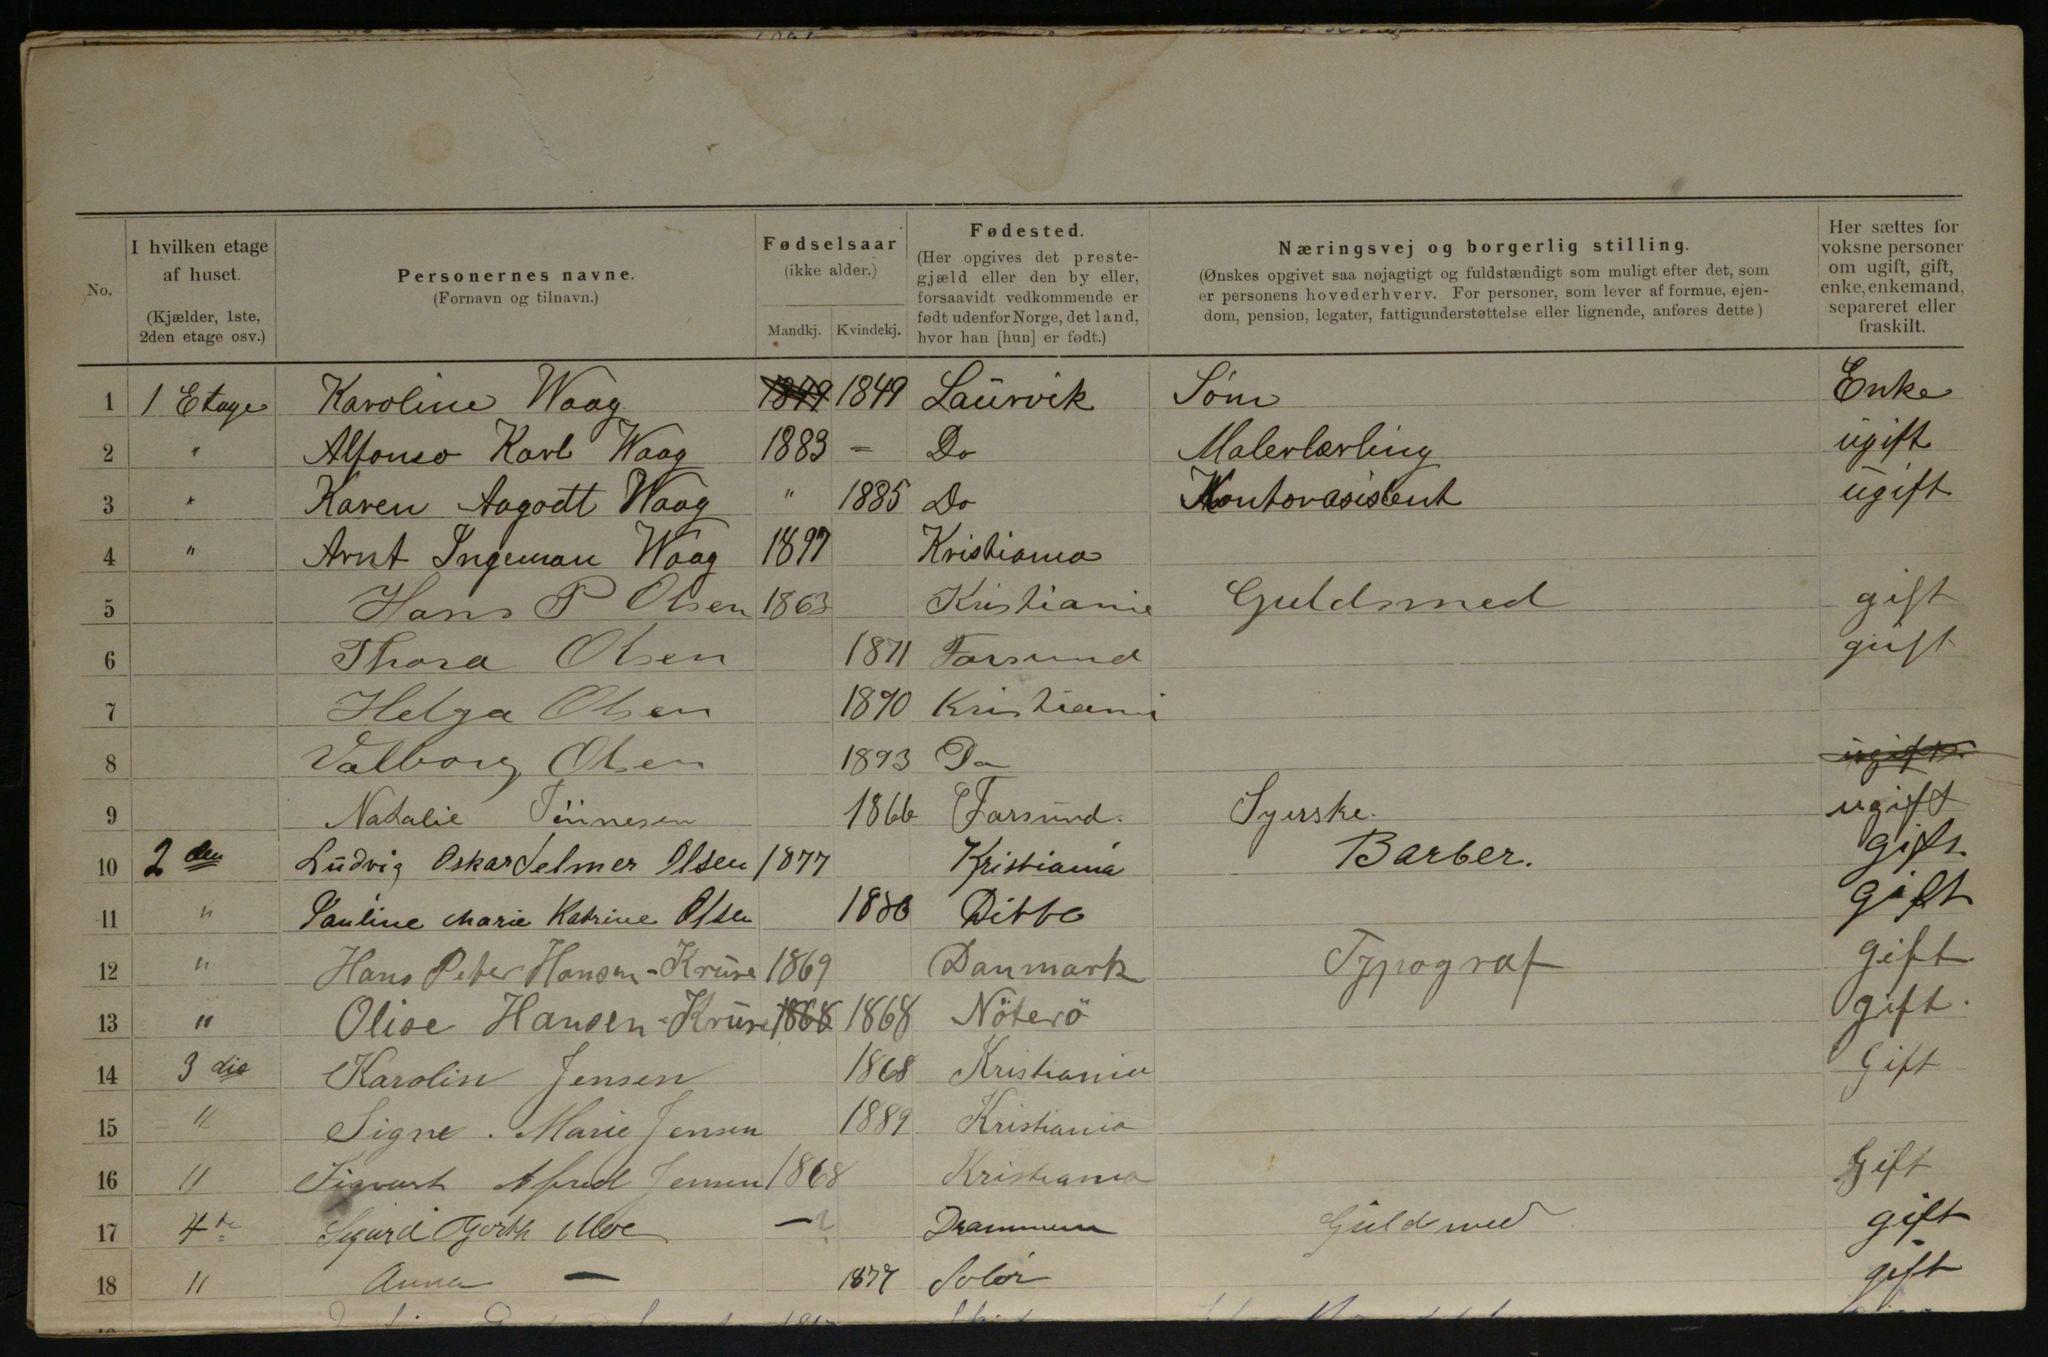 No.
I hvilken etage af huset. (Kjælder, 1ste, 2den etage osv.)
Personernes navne. (Fornavn og tilnavn.)
Fødselsaar (ikke alder.) Mandkj. Kvindekj.
Fødested. (Her opgives det prestegjæld eller den by eller, forsaavidt vedkommende er født udenfor Norge, det land, hvor han [hun] er født.)
Næringsvej og borgerlig stilling. (Ønskes opgivet saa nøjagtigt og fuldstændigt som muligt efter det, som er personens hovederhverv. For personer, som lever af formue, ejendom, pension, legater, fattigunderstøttelse eller lignende, anføres dette)
Her sættes for voksne personer om ugift, gift, enke, enkemand, separeret eller fraskilt.
1 1 Etage Karoline Waag 1849 1849 Laurvik Søm Enke
2 " Alfonso Karl Waag 1883 – Do Malerlærling ugift
3 " Karen Aagodt Waag " 1885 Do Kontorasistent ugift
4 " Arnt Ingeman Waag 1897 Kristiania
5 Hans P Olsen 1863 Kristiania Guldsmed gift
6 Thora Olsen 1871 Farsund gift
7 Helga Olsen 1890 Kristiania
8 Valborg Olsen 1893 Do ugift
9 Natalie Tönnesen 1866 Farsund. Syerske. ugift
10 2 den Ludvig Oskar Selmer Olsen 1877 Kristiania Barber. gift
11 " Pauline Marie Katrine Olsen Ditto gift
12 " Hans Peter Hansen-Kruse 1869 Danmark Typograf gift
13 " Olise Hansen-Kruse 1868 1868 Nöterö gift.
14 3 die Karolin Jensen 1868 Kristiania Gift
15 " Signe. Marie Jensen 1889 Kristiania
16 " Sigvart Alfred Jensen 1868 Kristiania Gift
17 4de Sigurd Gjorth Moe – ? Drammen Guldsmed gift
18 " Anna — 1877 Solør gift